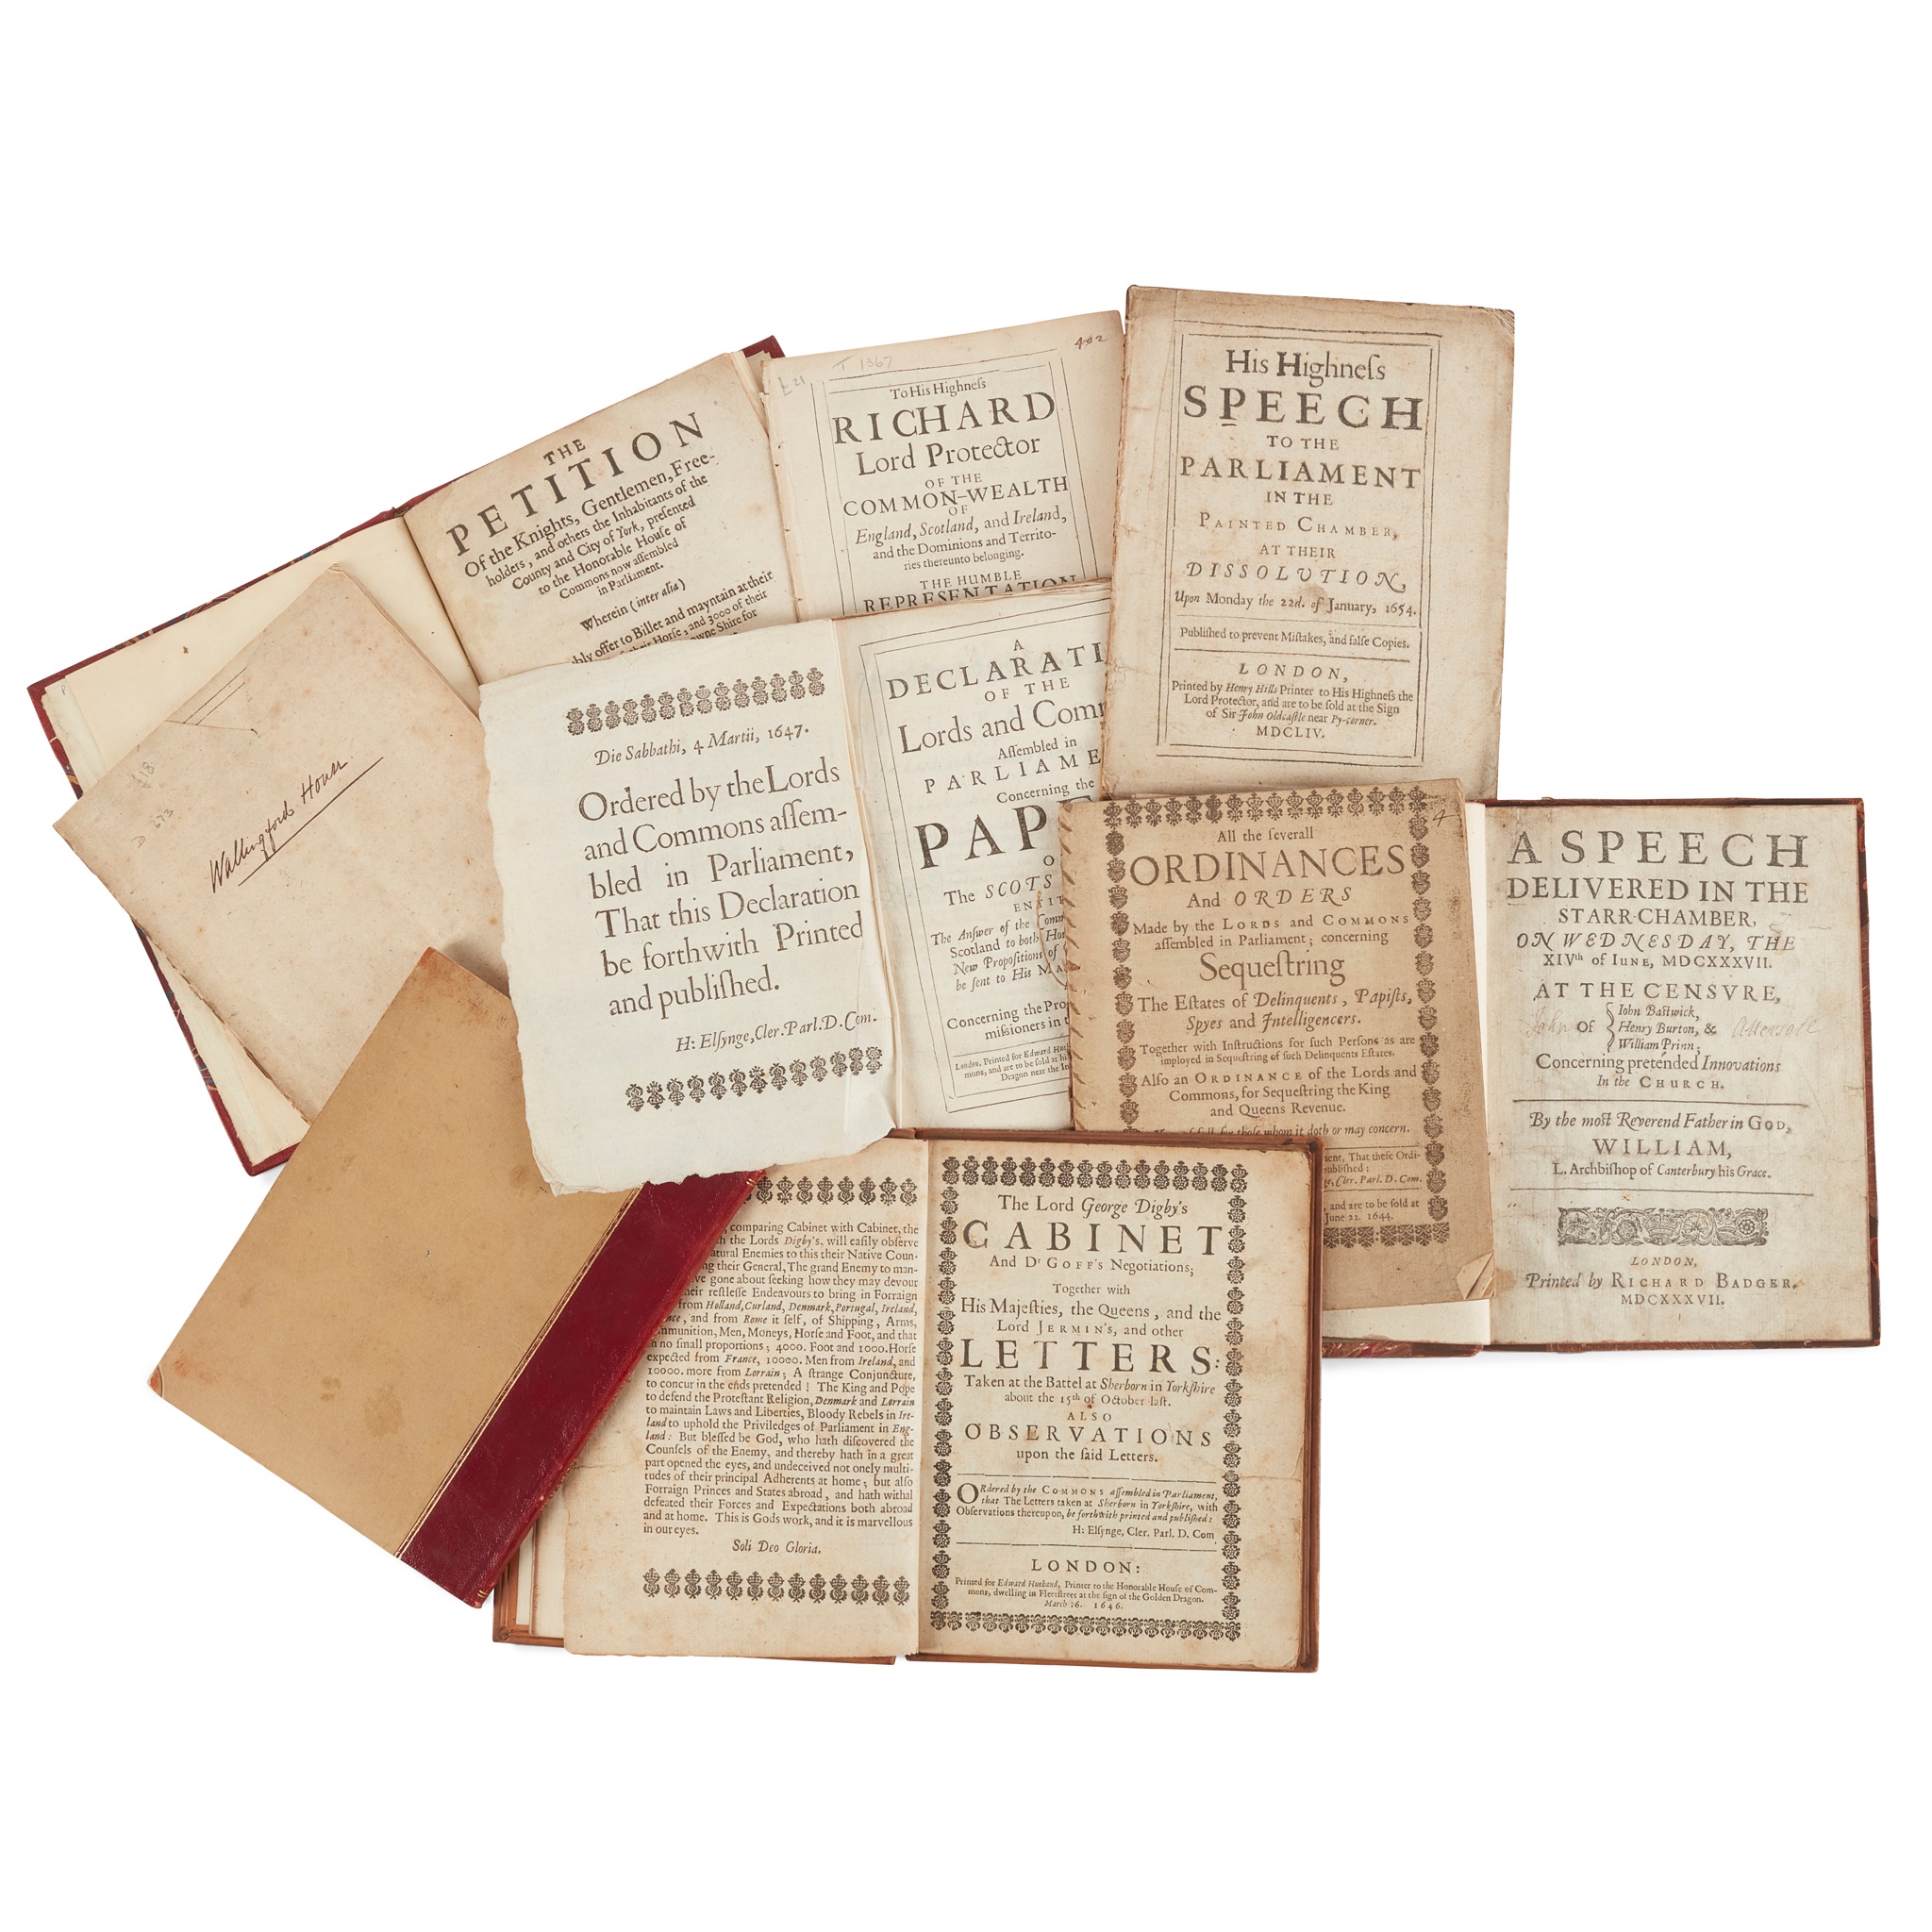 THE
PETITION
Of the Knights, Gentlemen, Free-
holders, and others the Inhabitants of the
County and City of York, preſented
to the Honorable Houſe of
Commons now aſſembled
in Parliament.
Wherein (inter alia)
offer to Billet and mayntain at their
Horſe, and 3000 of their
Shire for
T 1367
E 21
402
To His Highneſs
RICHARD
Lord Protector
OF THE
COMMON-WEALTH
OF
England, Scotland, and Ireland,
and the Dominions and Territo-
ries thereunto belonging.
THE HUMBLE
REPRESENTATION
His Highneſs
SPEECH
TO THE
PARLIAMENT
IN THE
PAINTED CHAMBER,
AT THEIR
DISSOLVTION,
Upon Monday the 22d. of January, 1654.
Publiſhed to prevent Miſtakes, and falſe Copies.
LONDON,
Printed by Henry Hills Printer to His Highneſs the
Lord Protector, and are to be ſold at the Sign
of Sir John Oldcaſtle near Py-corner.
MDCLIV.
418
D 673
Wallingford House
Die Sabbathi, 4 Martii, 1647.
Ordered by the Lords
and Commons aſſem-
bled in Parliament,
That this Declaration
be forthwith Printed
and publiſhed.
H: Elſynge, Cler. Parl. D. Com.
A
DECLARATI
OF THE
Lords and Comm
Aſſembled in
PARLIAME
Concerning the
PAPE
O
The SCOTS
ENTIT
The Answer of the Comm
Scotland to both Hou
New Propoſitions of
be ſent to His MA
Concerning the Pro
miſſioners in t
London, Printed for Edward Hus
mons, and are to be ſold at hi
Dragon near the In
4
All the ſeverall
ORDINANCES
And ORDERS
Made by the LORDS and COMMONS
aſſembled in Parliament; concerning
Sequeſtring
The Eſtates of Delinquents, Papiſts,
Spyes and Intelligencers.
Together with Inſtructions for ſuch Perſons as are
imployed in Sequeſtring of ſuch Delinquents Eſtates.
Alſo an ORDINANCE of the Lords and
Commons, for Sequeſtring the King
and Queens Revenue.
for thoſe whom it doth or may concern.
ment, That theſe Ordi-
publiſhed:
Cler. Parl. D. Com.
and are to be ſold at
June 22. 1644.
A SPEECH
DELIVERED IN THE
STARR-CHAMBER,
ON WEDNESDAY, THE
XIVth of IUNE, MDCXXXVII.
AT THE CENSVRE,
John OF Iohn Baſtwick,
Henry Burton, &
William Prinn;
Concerning pretended Innovations
In the CHURCH.
By the moſt Reverend Father in GOD,
WILLIAM,
L. Archbiſhop of Canterbury his Grace.
LONDON,
Printed by RICHARD BADGER.
MDCXXXVII.
comparing Cabinet with Cabinet, the
the Lords Digby's, will eaſily obſerve
atural Enemies to this their Native Coun-
ng their General, The grand Enemy to man-
ve gone about ſeeking how they may devour
heir reſtleſſe Endeavours to bring in Forraign
from Holland, Curland, Denmark, Portugal, Ireland,
nce, and from Rome it ſelf, of Shipping, Arms,
mmunition, Men, Moneys, Horſe and Foot, and that
in no ſmall proportions; 4000. Foot and 1000. Horſe
expected from France, 10000. Men from Ireland, and
10000. more from Lorrain; A ſtrange Conjuncture,
to concur in the ends pretended! The King and Pope
to defend the Proteſtant Religion, Denmark and Lorrain
to maintain Laws and Liberties, Bloody Rebels in Ire-
land to uphold the Priviledges of Parliament in Eng-
land: But bleſſed be God, who hath diſcovered the
Counſels of the Enemy, and thereby hath in a great
part opened the eyes, and undeceived not onely multi-
tudes of their principal Adherents at home; but alſo
Forraign Princes and States abroad, and hath withal
defeated their Forces and Expectations both abroad
and at home. This is Gods work, and it is marvellous
in our eyes.
Soli Deo Gloria.
The Lord George Digby's
CABINET
And Dr GOFF'S Negotiations;
Together with
His Majeſties, the Queens, and the
Lord JERMIN'S, and other
LETTERS:
Taken at the Battel at Sherborn in Yorkſhire
about the 15th of October laſt.
ALSO
OBSERVATIONS
upon the ſaid Letters.
ORdered by the COMMONS aſſembled in Parliament,
that The Letters taken at Sherborn in Yorkſhire, with
Obſervations thereupon, be forthwith printed and publiſhed:
H: Elſynge, Cler. Parl. D. Com
LONDON:
Printed for Edward Husband, Printer to the Honorable Houſe of Com-
mons, dwelling in Fleetſtreet at the ſign of the Golden Dragon.
March 26. 1646.